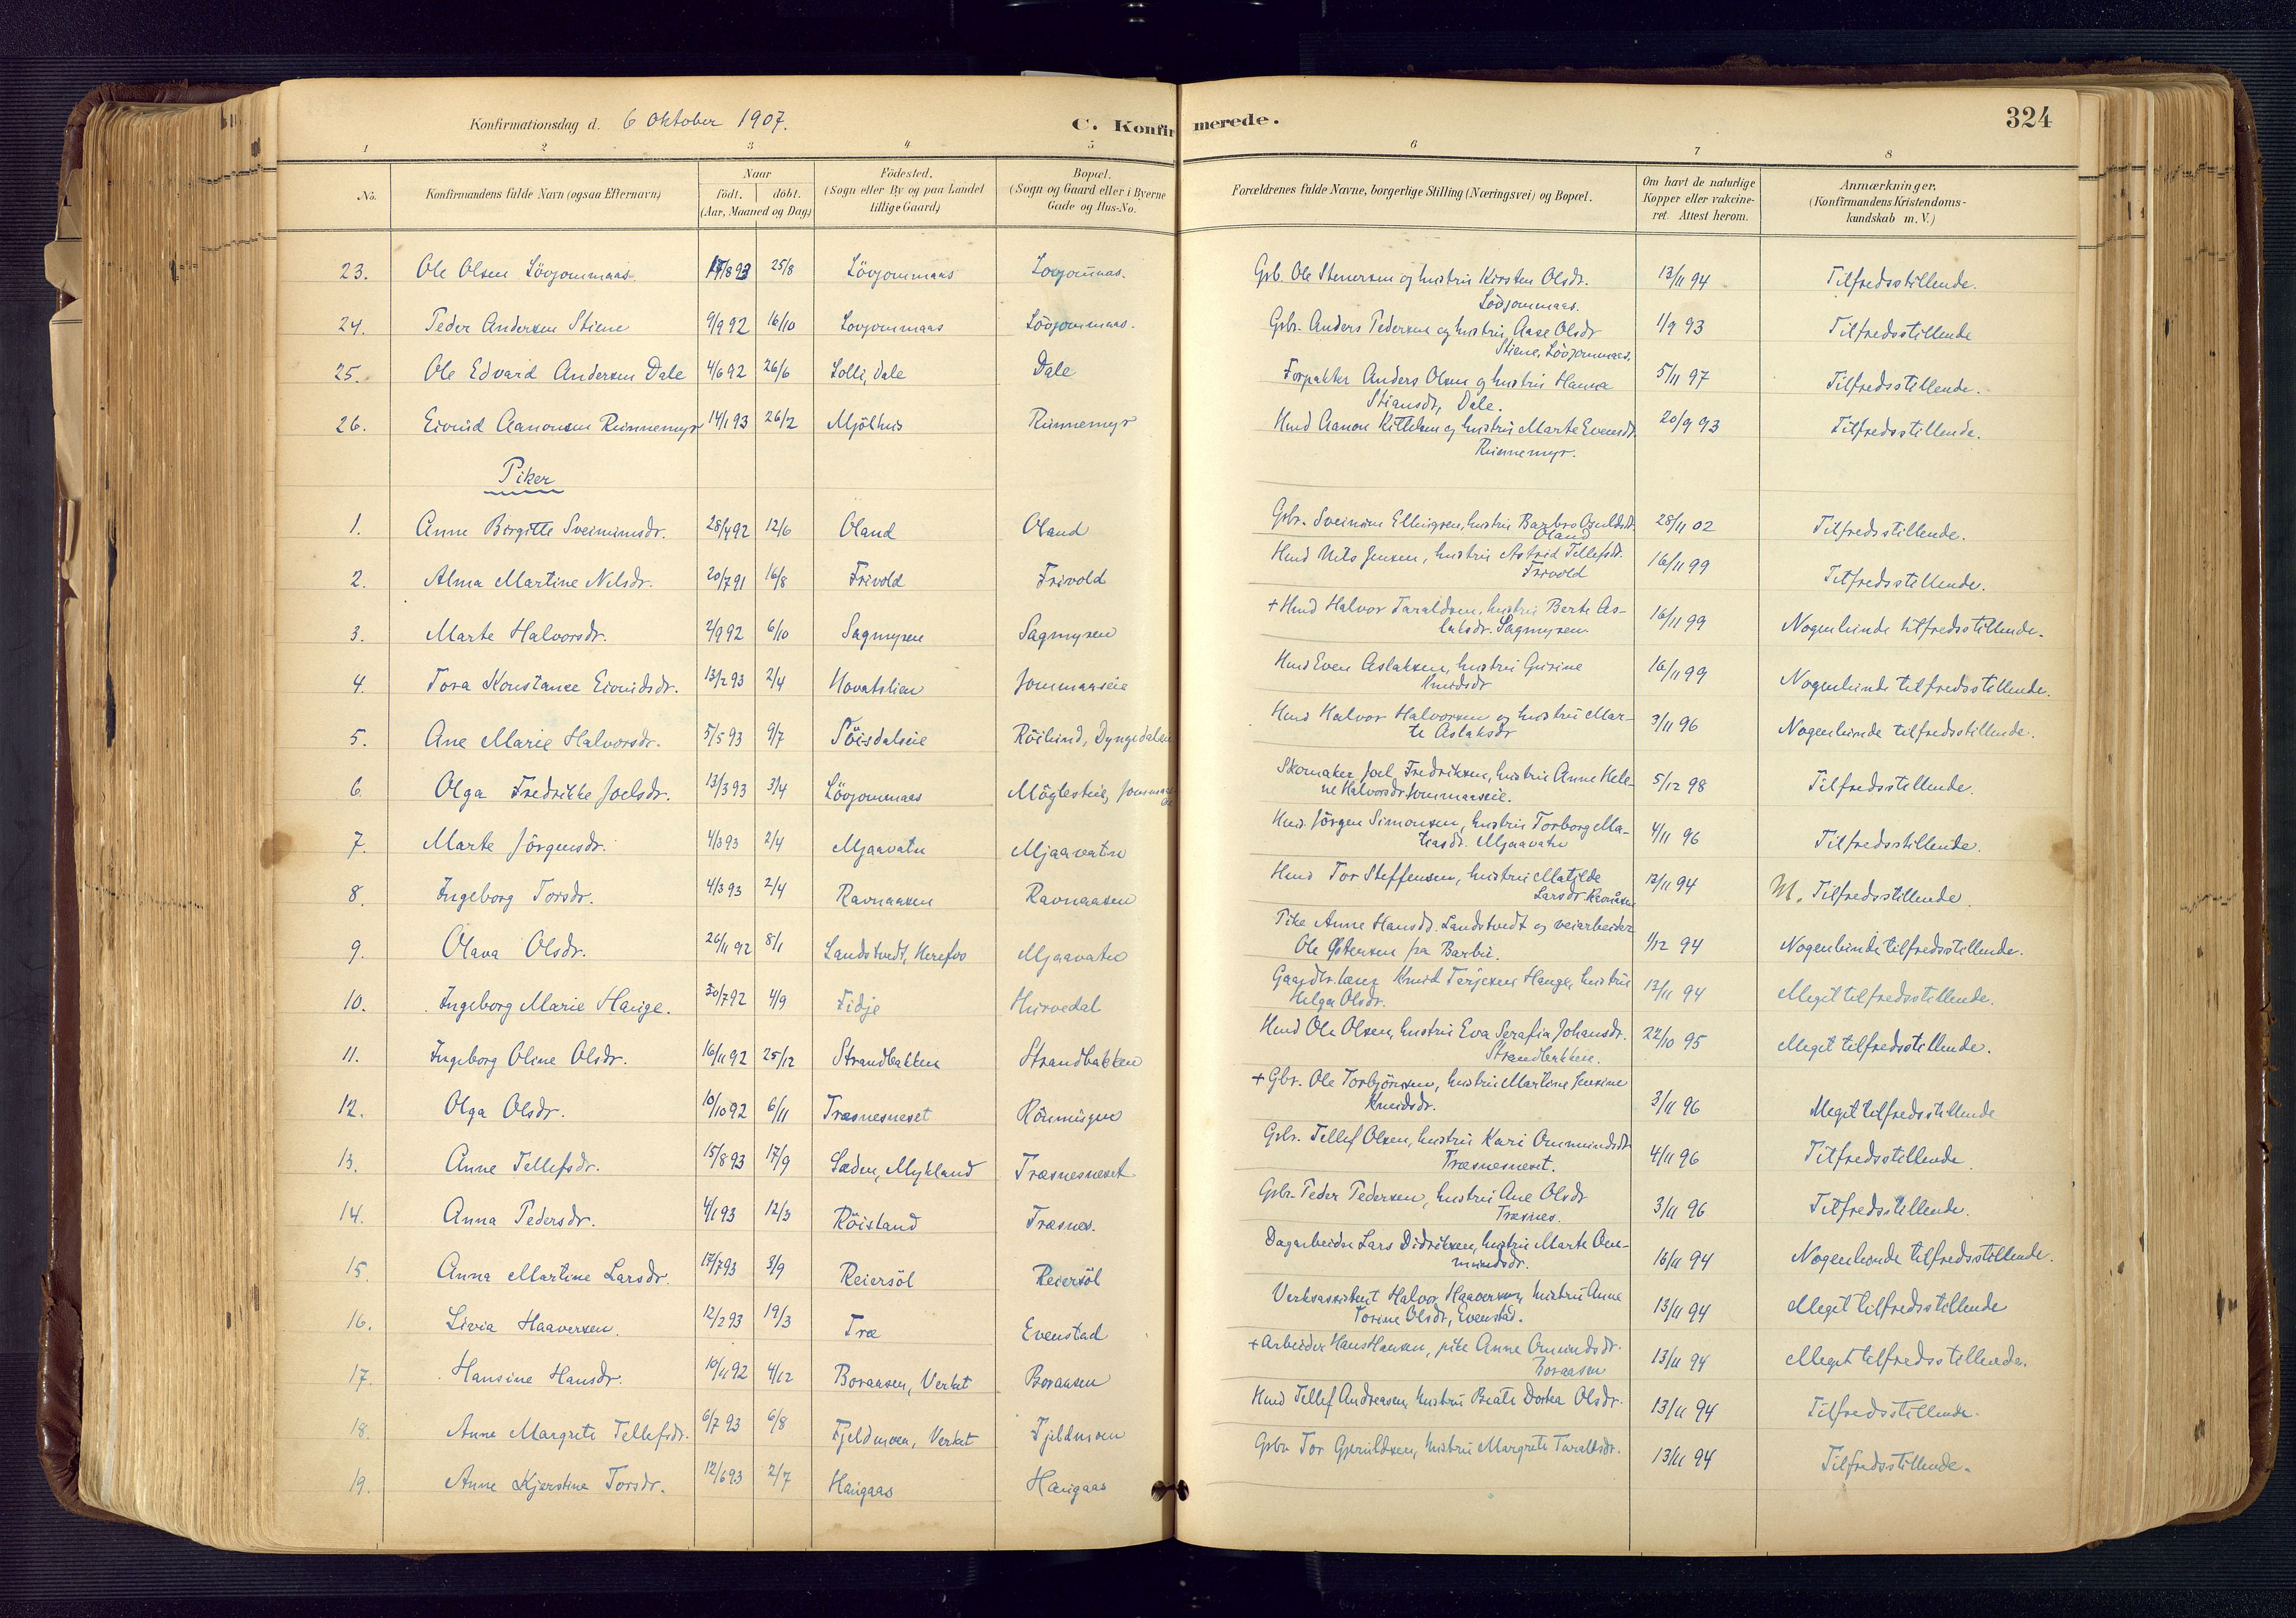 Konfirmationsdag d. 6 Oktober 1907.
C. Konfirmerede.
324
1 2 3 4 5 6 7 8
No. Konfirmandens fulde Navn (ogsaa Efternavn) Naar født. døbt. (Aar, Maaned og Dag) Fødested. (Sogn eller By og paa Landet tillige Gaard) Bopæl. (Sogn og Gaard eller i Byerne Gade og Hus-No. Forældrenes fulde Navne, borgerlige Stilling (Næringsvei) og Bopæl. Om havt de naturlige Kopper eller vakcineret. Attest herom. Anmærkninger. (Konfirmandens Kristendomskundskab m. V.)
23. Ole Olsen Lövjommaas. 17/8 93 25/8 Lövjommaas Lovjom̄aas. Gsb. Ole Stenersen og hustru Kirsten Olsdr. Lövjommaas. 13/11 94 Tilfredsstillende.
24. Peder Andersen Stiene 9/9 92 16/10 Lovjommaas Lövjommaas. Gsbr. Anders Pedersen og hustru Aase Olsdr Stiene, Lövjommaas. 1/9 93 Tilfredsstillende
25. Ole Edvard Andersen Dale 4/6 92 26/6 Lolli, Dale Dale Forpakter Anders Olsen og hustru Hanna Stiansdr, Dale. 5/11 97 Tilfredsstillende.
26. Eivind Aanonsen Rünnemyr 14/1 93 26/2 Mjölhus Rünnemyr Hmd Aanon Kittelsen og hustru Marte Evensdr. Rünnemyr. 20/9 93 Tilfredsstillende.
Piker
1. Anne Birgitte Sveinimsdr. 28/4 92 12/6 Oland Oland Gsbr. Sveinim Ellingsen, hustru Barbro Oland 28/11 02 Tilfredsstillende.
2. Alma Martine Nilsdr. 20/7 91 16/8 Frivold Frivold Hmd Nils Jensen, hustru Astrid Tellefsdr. Frivold 16/11 99 Tilfredsstillende.
3. Marte Halvorsdr. 2/9 92 6/10 Sagmyren Sagmyren + Hmd Halvor Taraldsen, hustru Berte Aslaksdr. Sagmyren 16/11 99 Nogenlunde tilfredsstillende.
4. Tora Konstanse Eivindsdr. 13/2 93 2/4 Hovatslien Jommaaseie Hmd Even Aslaksen, hustru Gurine Knudsdr 16/11 99 Nogenlunde tilfredsstillende.
5. Ane Marie Halvorsdr. 5/5 93 9/7 Töisdalseie Röilund, Dyngedalen Hmd Halvor Halvorsen og hustru Marte Aslaksdr 3/11 96 Nogenlunde tilfredsstillende.
6. Olga Fredrikke Joelsdr. 13/3 93 3/4 Lövjommaas Möglesteie, Skomaker Joel Fredriksen, hustru Anne Helene Halvorsdr Jommaaseie. 5/12 98 Tilfredsstillende.
7. Marte Jörgensdr. 4/3 93 2/4 Mjaavatn Mjaavatn Hmd. Jörgen Simonsen, hustru Torborg Mateasdr. Mjaavatn 4/11 96 Tilfredsstillende.
8. Ingeborg Torsdr. 4/3 93 2/4 Ravnaasen Ravnaasen Hmd Tor Steffensen, hustru Matilde Larsdr. Ravnåsen 13/11 94 M. Tilfredsstillende.
9. Olava Olsdr. 26/11 92 8/1 Landstvedt, Herefos Mjaavatn Pike Anne Hansdr. Landstvedt og veiarbeider Ole Östensen fra Barbu. 1/12 94 Nogenlunde tilfredsstillende.
10. Ingeborg Marie Hauge. 30/7 92 4/9 Fidje Hurvedal Knud Tarjesen Hauge, hustru Helga Olsdr. 13/11 94 Meget tilfredsstillende.
11. Ingeborg Oline Olsdr. 16/11 92 25/12 Strandbakken Strandbakken Hmd Ole Olsen, hustru Eva Serafia Johansdr. Strandbakken. 22/10 95 Meget tilfredsstillende.
12. Olga Olsdr. 10/10 92 6/11 Træsnesneset + Gbr. Ole Torbjörnsen, hustru Martine Jensine Knudsdr. 3/11 96 Meget tilfredsstillende
13. Anne Tellefsdr. 15/8 93 17/9 Læden, Mykland Træsnesneset Gsbr. Tellef Olsen, hustru Kari Ommundsdr Træsnesneset. 4/11 96 Tilfredsstillende.
14. Anna Pedersdr. 4/1 93 12/3 Röisland Træsnes. Gsbr. Peder Pedersen, hustru Ane Olsdr Træsnes. 3/11 96 Tilfredsstillende.
15. Anna Martine Larsdr. 17/7 93 3/9 Reiersöl Reiersöl Dagarbeider Lars Didriksen, hustru Marte Ommundsdr. 16/11 94 Nogenlunde tilfredsstillende.
16. Livia Haaversen. 12/2 93 19/3 Træ Evenstad Verksassistent Halvor Haaversen, hustru Anne Torine Olsdr, Evenstad. 13/11 94 Meget tilfredsstillende
17. Hansine Hansdr. 10/11 92 4/12 Boraasen, Verket Boraasen + Arbeider Hans Hansen, pike Anne Omundsdr. Boraasen 13/11 94 Meget tilfredsstillende.
18. Anne Margrete Tellefsdr. 6/7 93 6/8 Fjeldmoen, Verket Fjeldmoen Hmd Tellef Andreasen, hustru Beate Dortea Olsdr. 13/11 94 Tilfredsstillende.
19. Anne Kjerstine Torsdr. 12/6 93 2/7 Haugaas Haugaas Gsbr Tor Gjeruldsen, hustru Margrete Taraldsdr. 13/11 94 Tilfredsstillende.